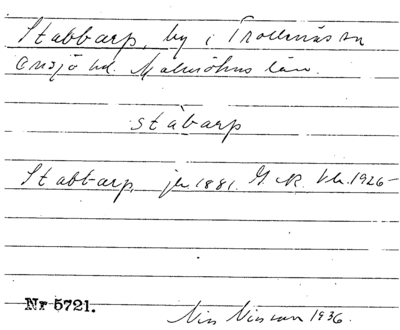 Stabbarp, by i Trollenäs sn
Onsjö hd. Malmöhus län.
stàbarp
Stabbarp, jb 1881. G. R. 1926-
Nr 5721.
Nils Nilsson 1936.